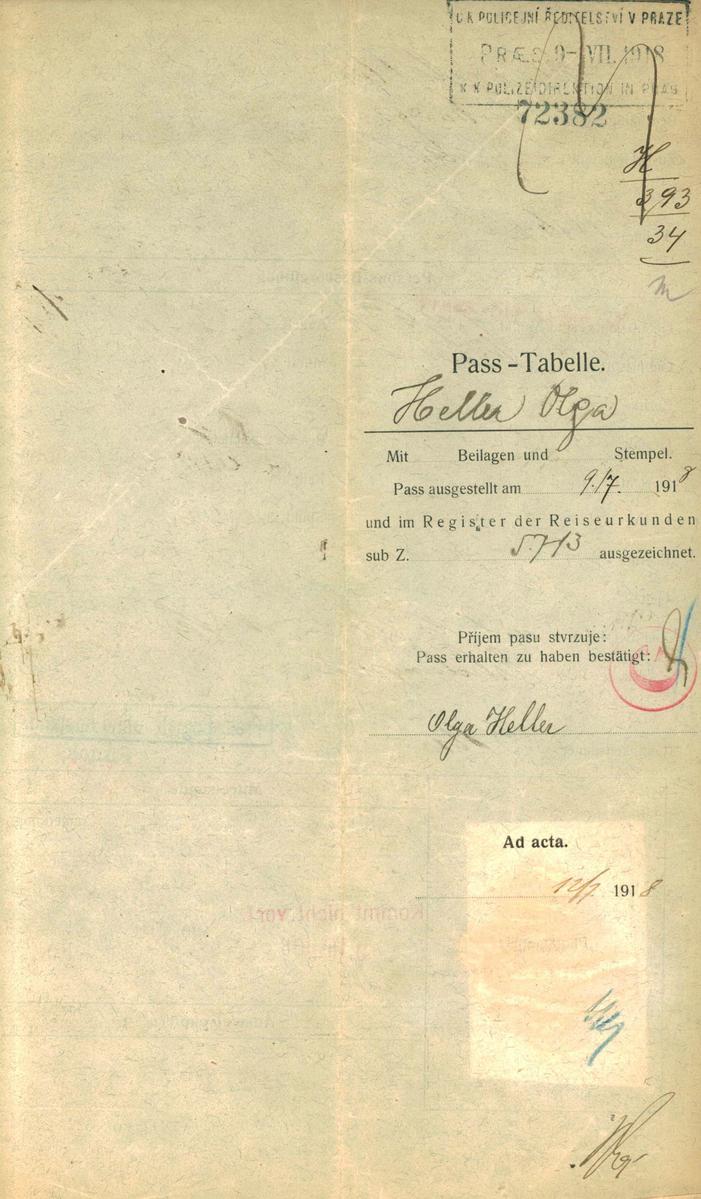 C K POLICEJNÍ ŘEDITELSTVÍ V PRAZE
PRÆS. 9-VII. 1918
K K POLIZEIDIREKTION IN PRAG
72382
H
393
34
Pass-Tabelle.
Heller Olga
Mit Beilagen und Stempel.
Pass ausgestellt am 9./7. 1918
und im Register der Reiseurkunden
sub Z. 5713 ausgezeichnet.
Příjem pasu stvrzuje:
Pass erhalten zu haben bestätigt:
Olga Heller
Ad acta.
12/7 1918
Kommt nicht vor!